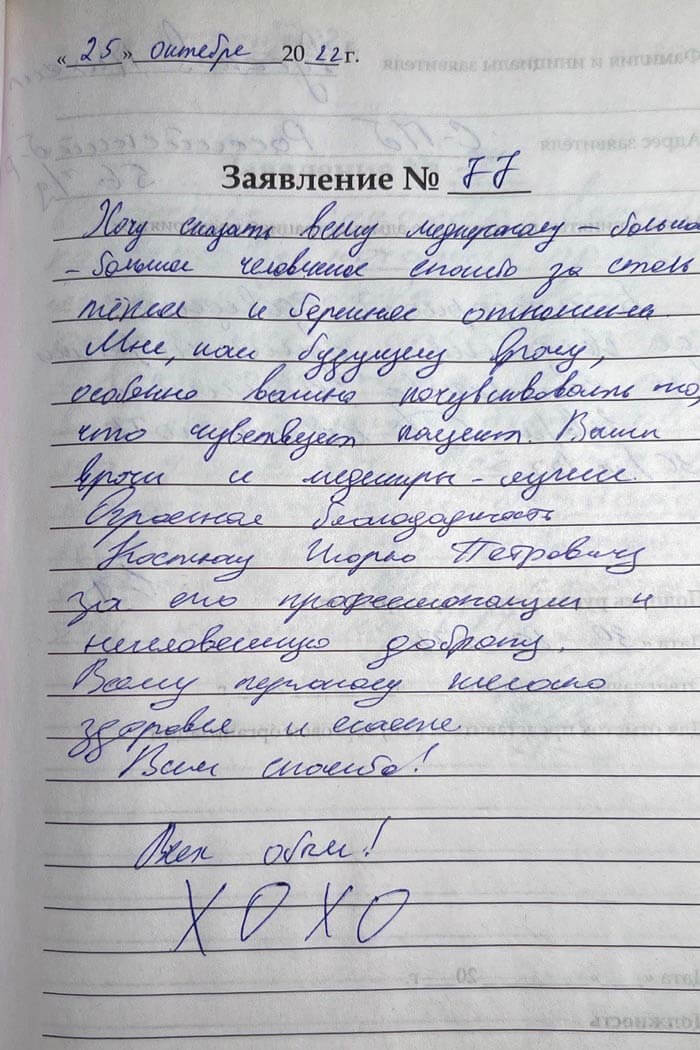 «25» октября 2022 г.
Заявление № 77
Хочу сказать всему медперсоналу – большое
– большое человеческое спасибо за столь
тёплое и бережное отношение.
Мне, как будущему врачу,
особенно важно почувствовать то,
что чувствует пациент. Ваши
врачи и медсёстры – лучшие.
Огромная благодарность
Костюку Игорю Петровичу
за его профессионализм и
нечеловескую доброту.
Всему персоналу желаю
здоровья и счастье
Всем спасибо!
Всех обнял!
ХОХО
Фамилия и инициалы заявителя
Адрес заявителя